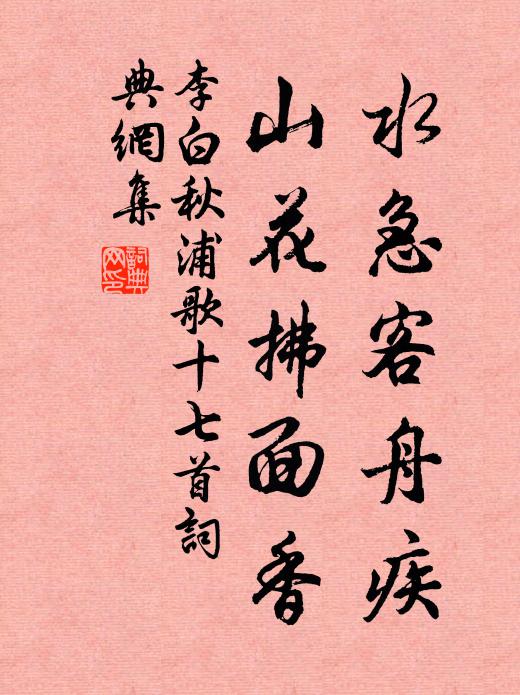 水急客舟疾
山花拂面香
李白秋浦歌十七首詞
典網集
詞典
网印